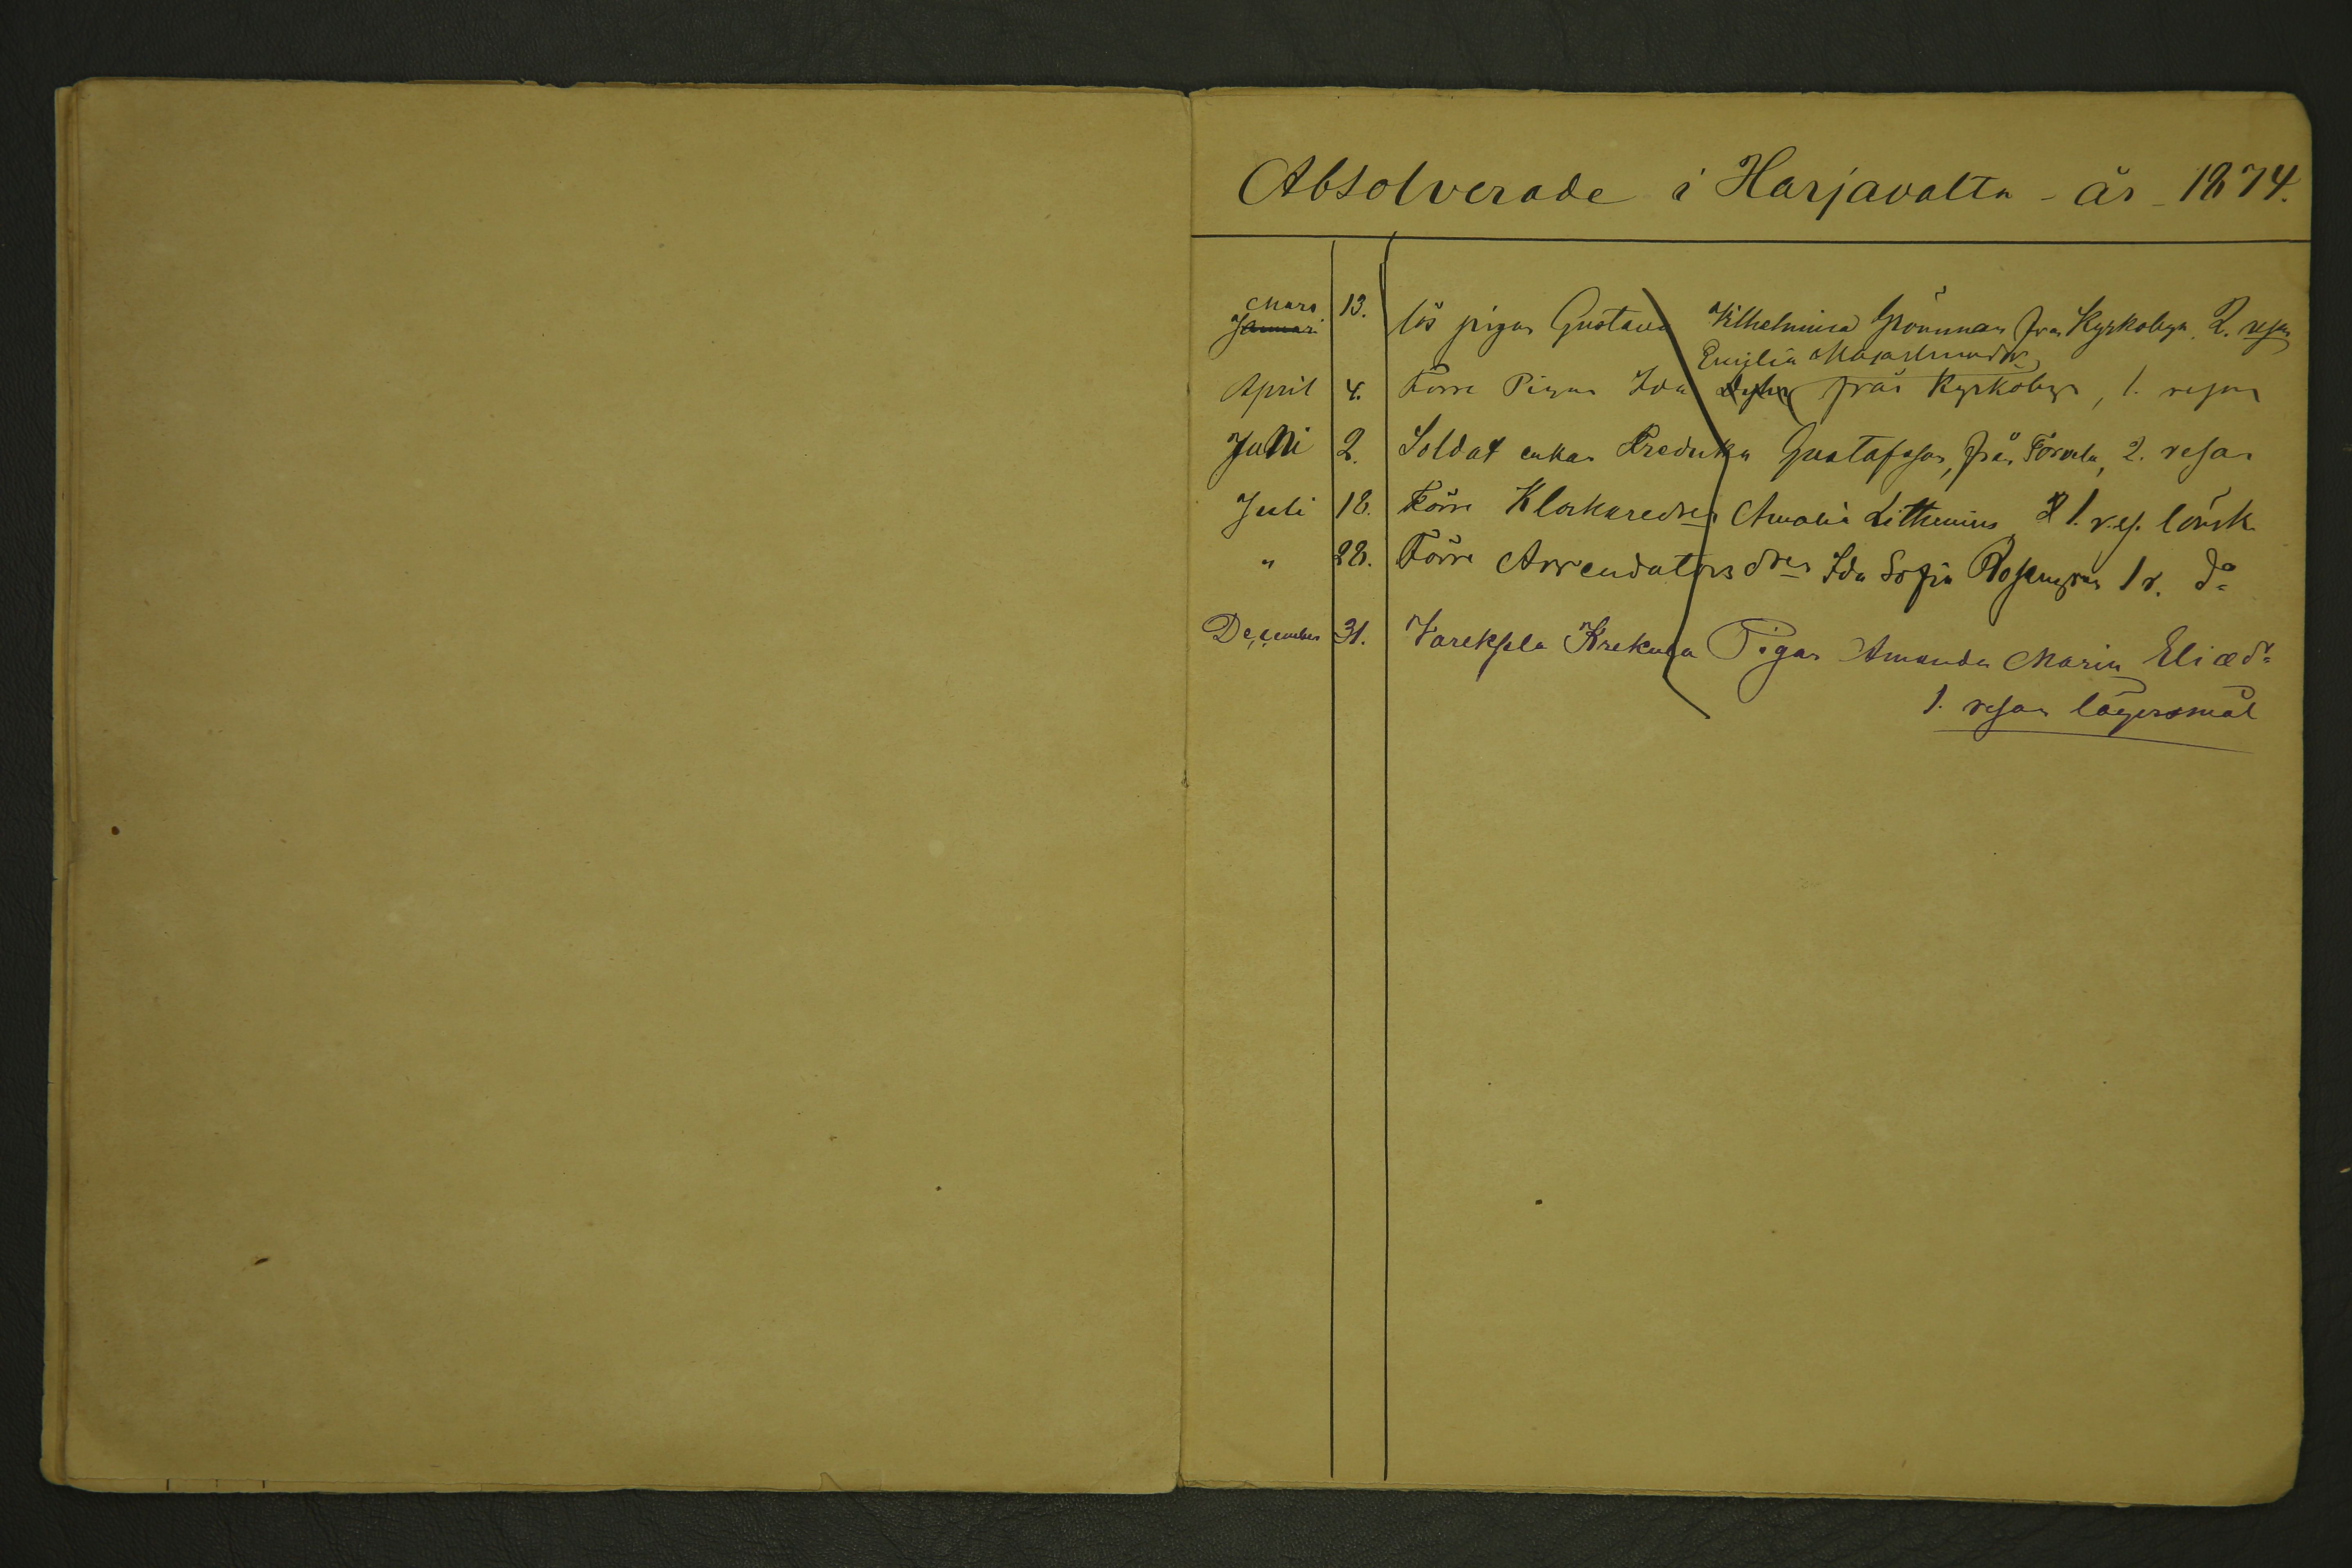 Absolverade i Harjavalta - år - 1874.
Mars
Januari 13. lös pigan Gustava Vilhelmina Grönman från Kyrkobyn. 2. resan
Emilia
April 4. Förra Pigan Ida från Kyrkobyn, 1. resan
Juni 2. Soldat enkan Fredrika Gustafsson, från Torvela, 2. resan
Juli 18. Förra Klockaredren Amalia Lithenius 1. res. lönsk
" 28. Förra Arrendators dren Ida Sofia Rosengren 1 r. do
December 31. Pigan Amanda Maria Eliædr
1. resan lägersmål